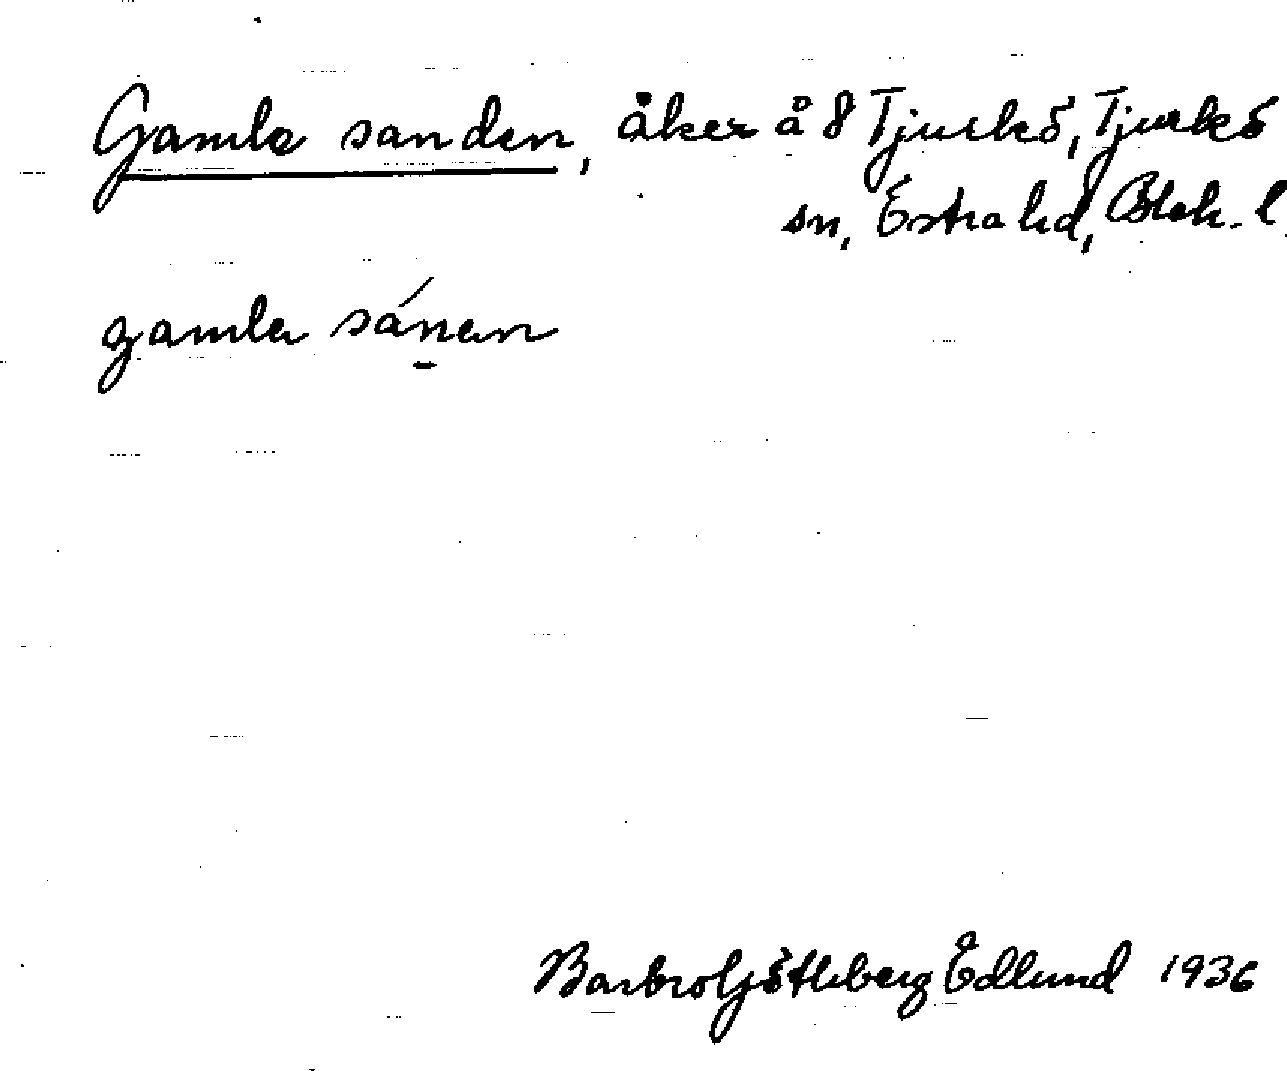 Gamla sanden, åker å 8 Tjurkö, Tjurkö
sn, Östra hd, Blek. l
gamla sánan
Barbro Götlberg Edlund 1936